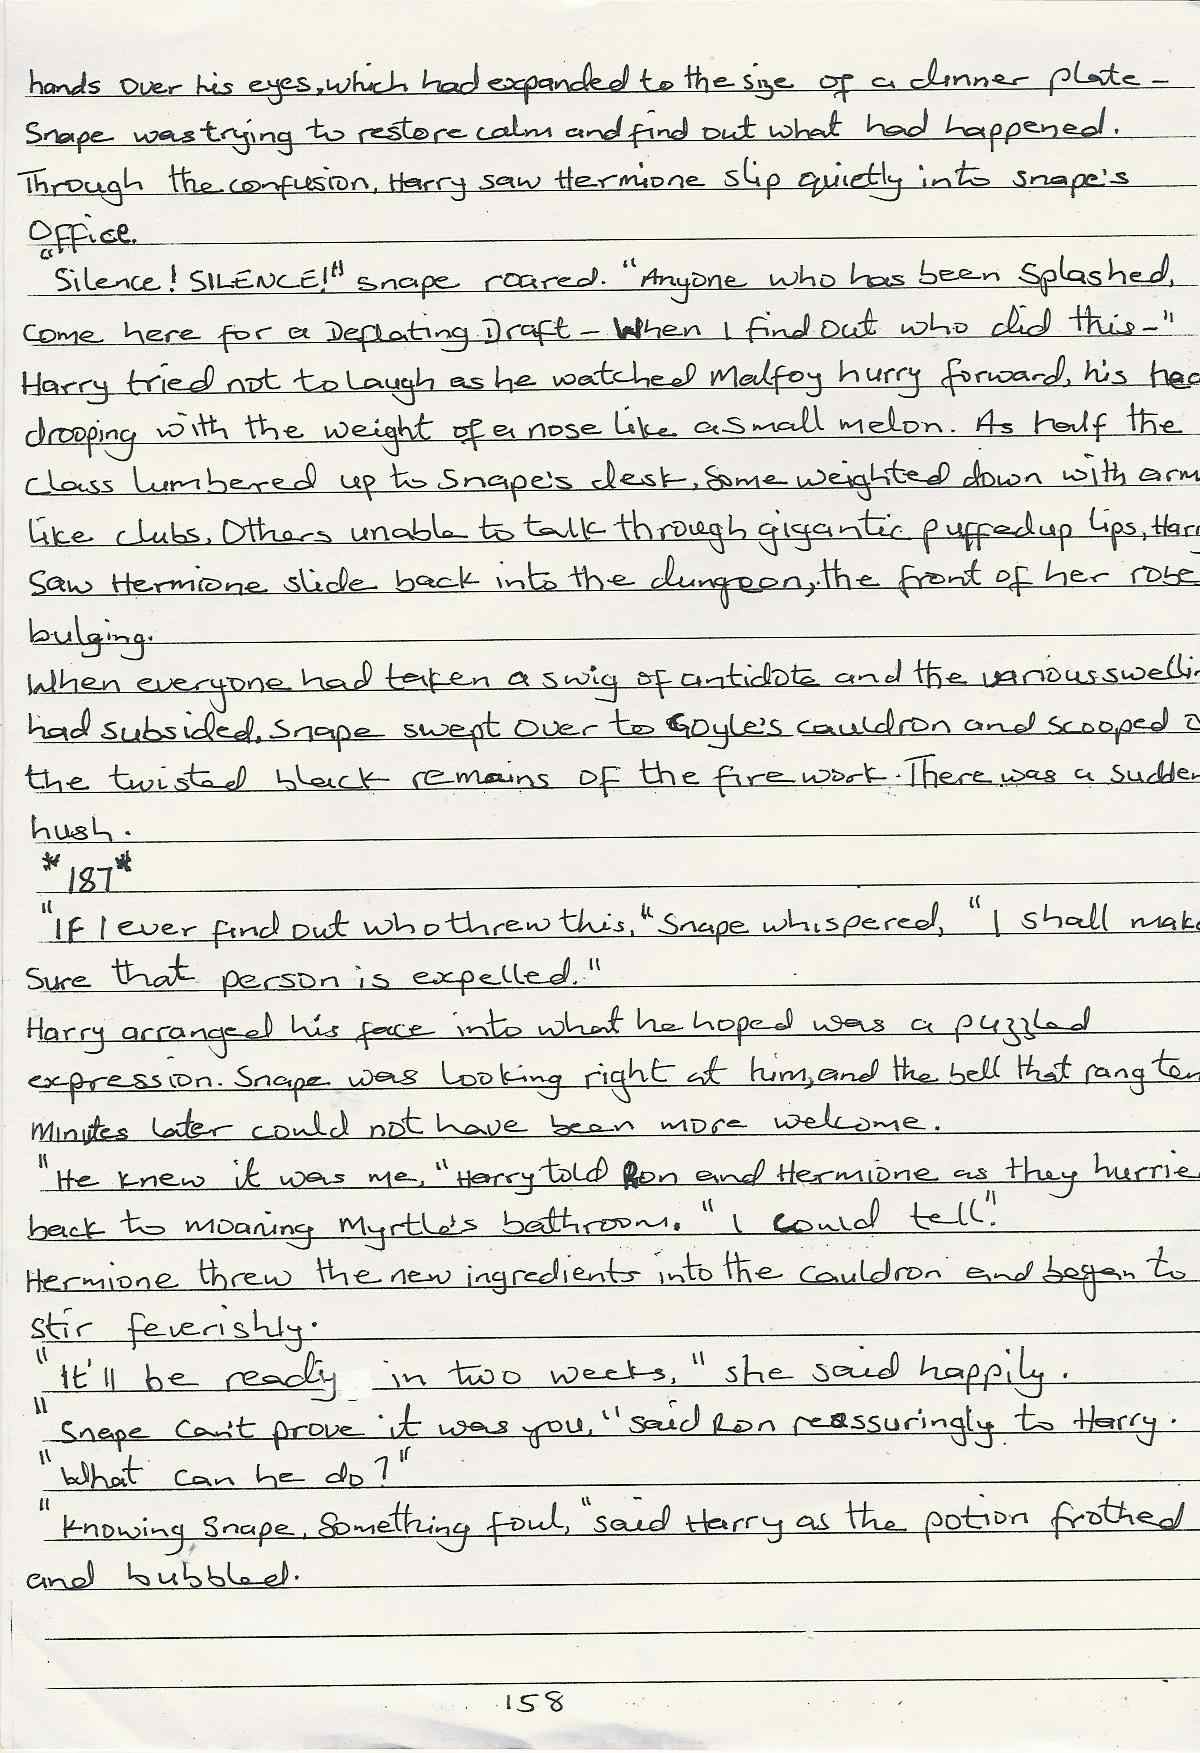 hands over his eyes, which had expanded to the size of a dinner plate -
Snape was trying to restore calm and find out what had happened.
Through the confusion, Harry saw Hermione slip quietly into snape's
Office.
"Silence! SILENCE!" snape roared. "Anyone who has been splashed,
come here for a Deflating Draft - When I find out who did this -"
Harry tried not to laugh as he watched Malfoy hurry forward, his hea
drooping with the weight of a nose like a small melon. As half the
class lumbered up to Snape's desk, some weighted down with arm
like clubs, Others unable to talk through gigantic puffed up lips, Harr
Saw Hermione slide back into the dungeon, the front of her robe
bulging.
When everyone had taken a swig of antidote and the various swellin
had subsided, Snape swept over to Goyle's cauldron and scooped o
the twisted black remains of the firework. There was a sudden
hush.
*187*
"If I ever find out who threw this," Snape whispered, "I shall make
Sure that person is expelled."
Harry arranged his face into what he hoped was a puzzled
expression. Snape was looking right at him, and the bell that rang ten
minutes later could not have been more welcome.
"He knew it was me," Harry told Ron and Hermione as they hurrie
back to moaning Myrtle's bathroom. "I could tell."
Hermione threw the new ingredients into the cauldron and began to
stir feverishly.
"It'll be ready in two weeks," she said happily.
"Snape can't prove it was you," said Ron reassuringly to Harry.
"What can he do?"
"Knowing Snape, something foul," said Harry as the potion frothed
and bubbled.
158